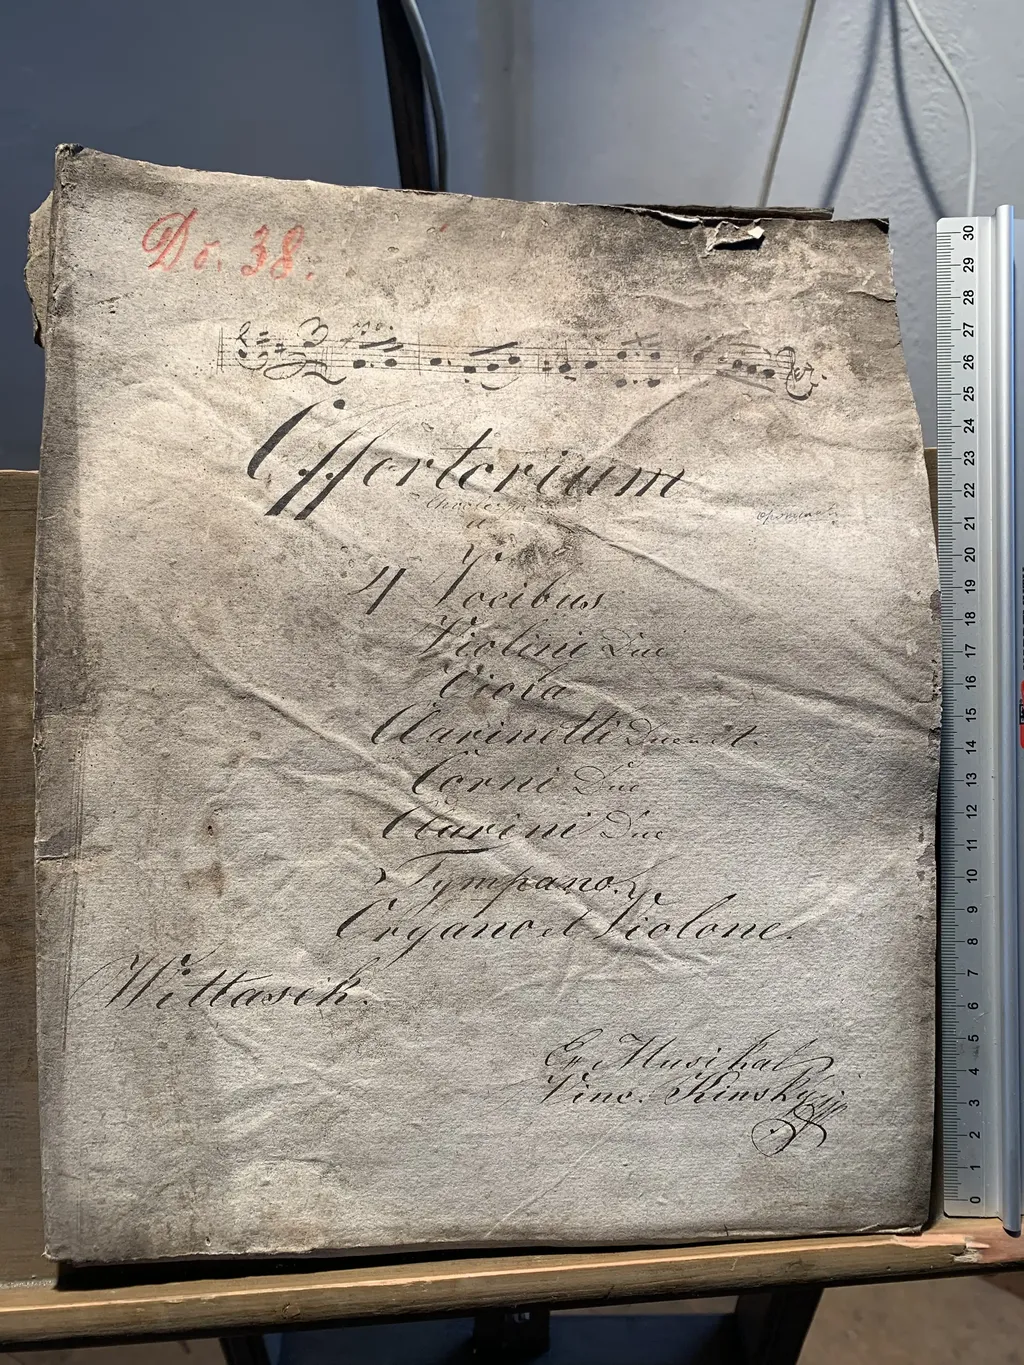 No. 38.
Offertorium
a
4 Vocibus
Violini Due
Viola
Clarinetti Due
Corni Due
Clarini Due
Tympano.
Organo et Violone.
Wittasek.
Ex Musikal
Vinc. Kinsky
30
29
28
27
26
25
24
23
22
21
20
19
18
17
16
15
14
13
12
11
10
9
8
7
6
5
4
3
2
1
0